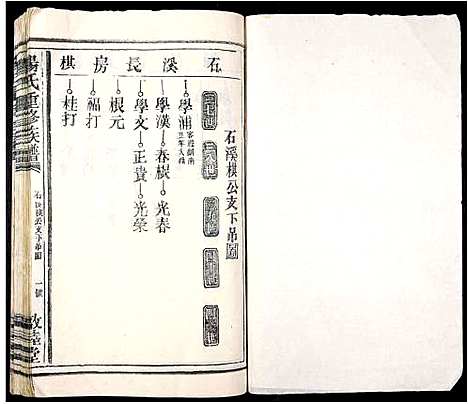 石溪長房棋
石溪棋公支下吊圖
學浦
學漢 春根 光春
學文 正貴 光榮
根元
福打
桂打
楊氏重修族譜
石溪棋公支下吊圖
一號
敦睦堂